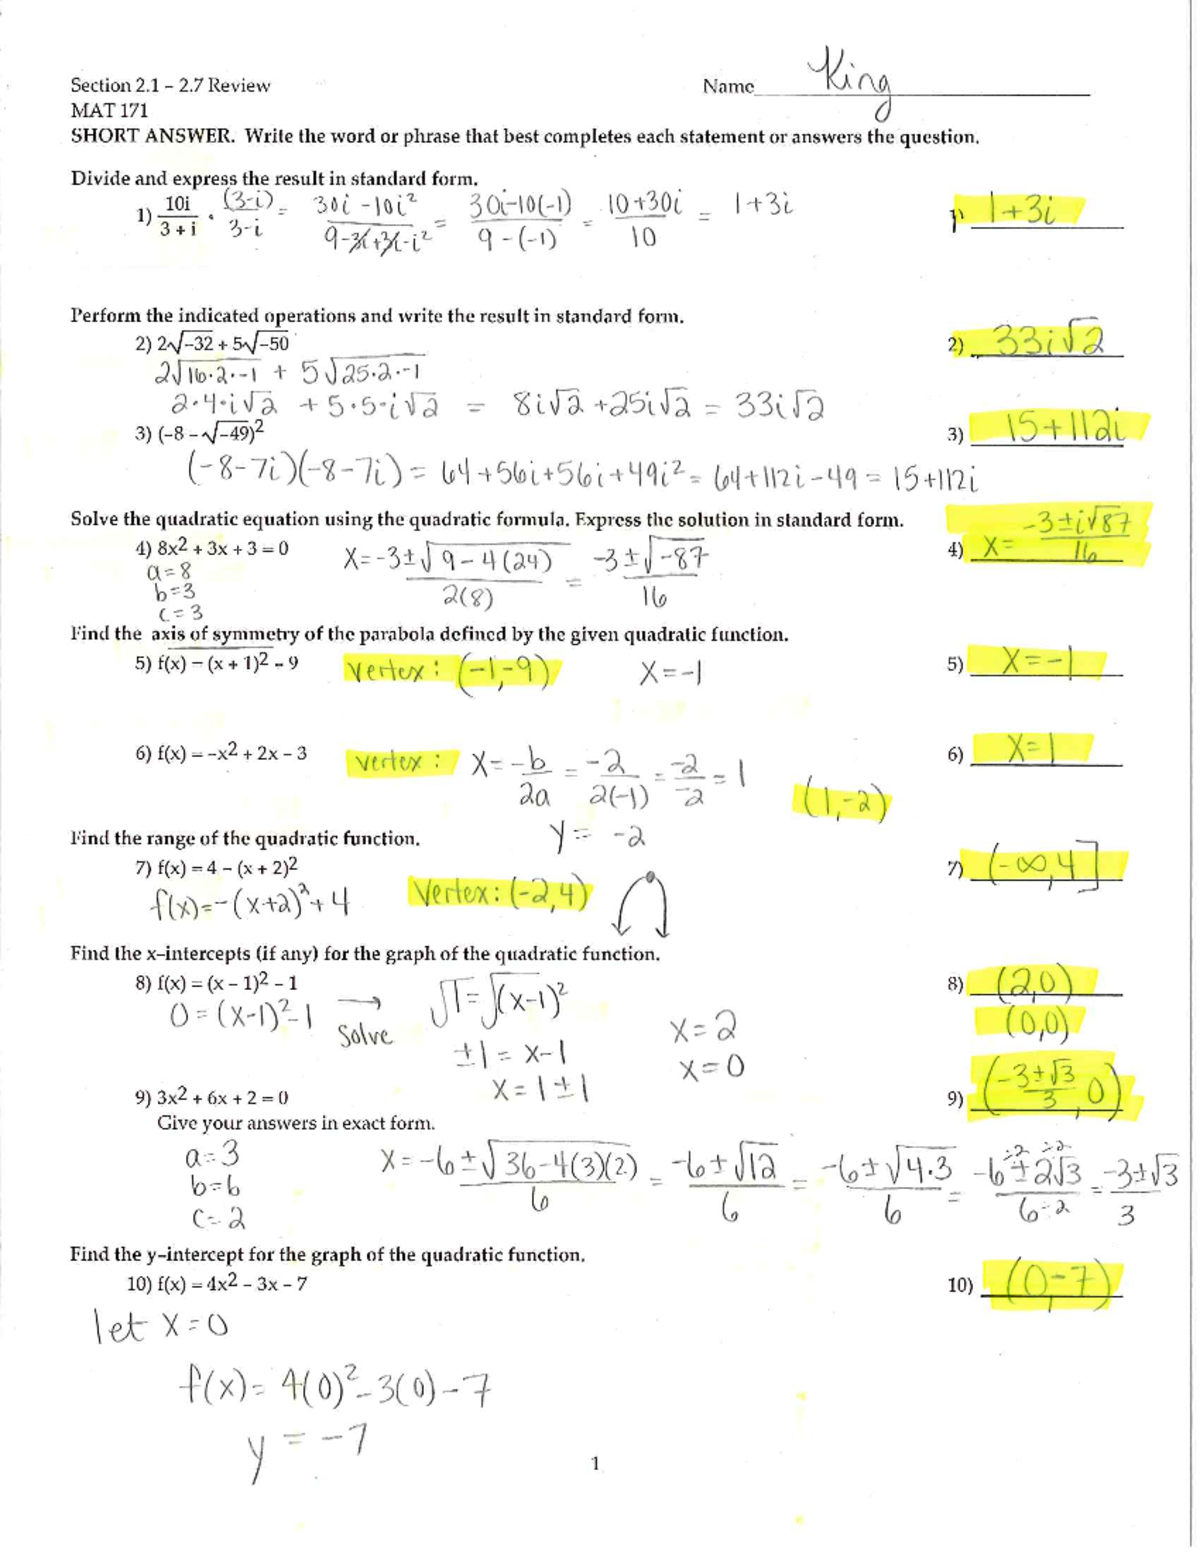 Section 2.1 – 2.7 Review Name King
MAT 171
SHORT ANSWER. Write the word or phrase that best completes each statement or answers the question.
Divide and express the result in standard form.
1) 10i/(3 + i) · (3-i)/(3-i) = (30i - 10i²)/(9-3i+3i-i²) = (30i-10(-1))/(9-(-1)) = (10+30i)/10 = 1+3i 1) 1+3i
Perform the indicated operations and write the result in standard form.
2) 2√-32 + 5√-50 2) 33i√2
2√16·2·-1 + 5√25·2·-1
2·4·i√2 + 5·5·i√2 = 8i√2 + 25i√2 = 33i√2
3) (-8 - √-49)² 3) 15+112i
(-8-7i)(-8-7i) = 64+56i+56i+49i² = 64+112i-49 = 15+112i
Solve the quadratic equation using the quadratic formula. Express the solution in standard form.
4) 8x² + 3x + 3 = 0 X = -3±√9-4(24) / 2(8) = -3±√-87 / 16 4) X = -3±i√87 / 16
a=8
b=3
c=3
Find the axis of symmetry of the parabola defined by the given quadratic function.
5) f(x) = (x + 1)² - 9 vertex: (-1,-9) X=-1 5) X=-1
6) f(x) = -x² + 2x - 3 vertex: X= -b/2a = -2/2(-1) = -2/-2 = 1 (1,-2) 6) X=1
y = -2
Find the range of the quadratic function.
7) f(x) = 4 - (x + 2)² 7) (-∞,4]
f(x)=-(x+2)²+4 Vertex: (-2,4)
Find the x-intercepts (if any) for the graph of the quadratic function.
8) f(x) = (x - 1)² - 1 8) (2,0)
0 = (x-1)²-1 → Solve √1 = √(x-1)² (0,0)
±1 = x-1 X=2
X = 1±1 X=0
9) 3x² + 6x + 2 = 0 9) (-3±√3 / 3, 0)
Give your answers in exact form.
a=3
b=6
c=2
X = -6±√36-4(3)(2) / 6 = -6±√12 / 6 = -6±√4·3 / 6 = -6÷2 ± 2√3÷2 / 6÷2 = -3±√3 / 3
Find the y-intercept for the graph of the quadratic function.
10) f(x) = 4x² - 3x - 7 10) (0,-7)
let X=0
f(x) = 4(0)²-3(0)-7
y = -7
1